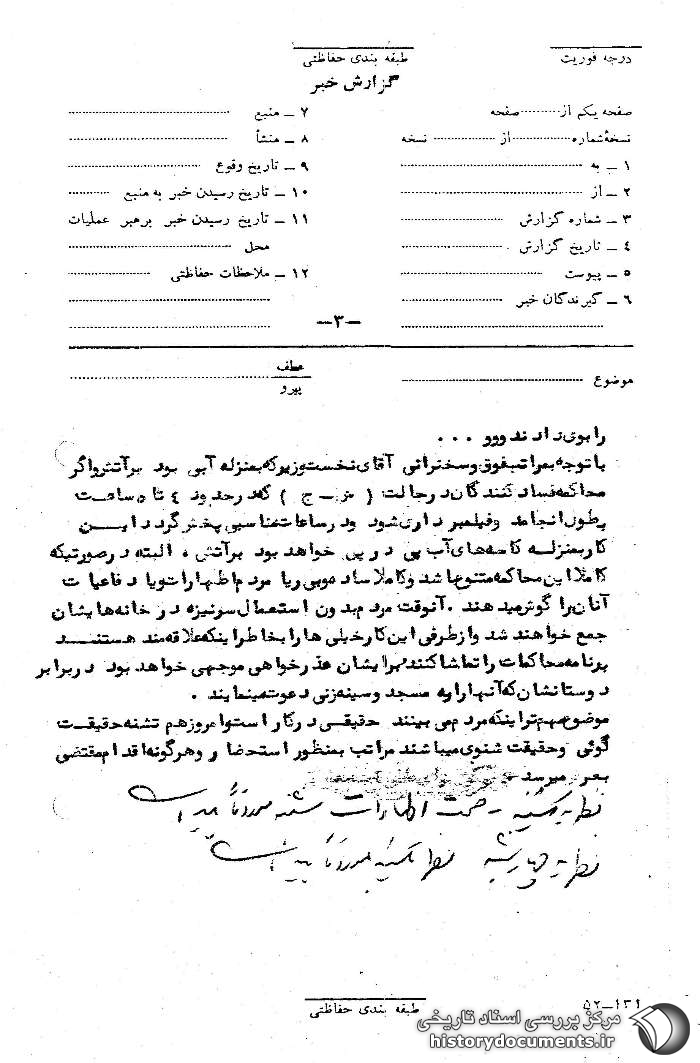 درجه فوریت
طبقه بندی حفاظتی
گزارش خبر
صفحه یکم از ........ صفحه
نسخهٔ شماره ........ از ........ نسخه
۱ ـ به ........
۲ ـ از ........
۳ ـ شماره گزارش ........
۴ ـ تاریخ گزارش ........
۵ ـ پیوست ........
۶ ـ گیرندگان خبر ........
۷ ـ منبع ........
۸ ـ منشأ ........
۹ ـ تاریخ وقوع ........
۱۰ ـ تاریخ رسیدن خبر به منبع ........
۱۱ ـ تاریخ رسیدن خبر برهبر عملیات
محل ........
۱۲ ـ ملاحظات حفاظتی ........
ـ۳ـ
موضوع ........
عطف
پیرو
را بوی دادند ووو ...
با توجه بمراتب فوق و سخنرانی آقای نخست وزیر که بمنزله آبی بود برآتش و اگر
محاکمه فساد کنندگان در حالت ( خ ـ ج ) که در حدود ٤ تا ٥ ساعت
بطول انجامد و فیلمبرداری شود و در ساعات مناسبی پخش گردد این
کار بمنزله کاسه های آب پی در پی خواهد بود برآتش ، البته در صورتیکه
کاملا این محاکمه متنوع باشد و کاملا ساده و بی ریا مردم اظهارات و یا دفاعیات
آنان را گوش میدهند . آنوقت مردم بدون استعمال سرنیزه در خانه هایشان
جمع خواهند شد و از طرفی این کار خیلی ها را بخاطر اینکه علاقه مند هستند
برنامه محاکمات را تماشا کنند برایشان عذرخواهی موجهی خواهد بود در برابر
دوستانشان که آنها را به مسجد و سینه زنی دعوت مینمایند .
موضوع مهمتر اینکه مردم می بینند حقیقی در کار است و امروز هم تشنه حقیقت
گوئی و حقیقت شنوی میباشند مراتب بمنظور استحضار و هرگونه اقدام مقتضی
بعرض میرسد
نظریه یکشنبه ـ صحت اظهارات شنبه مورد تائید است
نظریه چهارشنبه نظریه یکشنبه مورد تائید است
طبقه بندی حفاظتی
۵۲ـ۱۳۱
مرکز بررسی اسناد تاریخی
historydocuments.ir